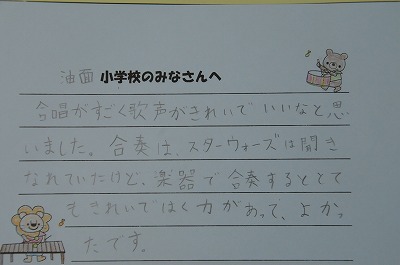 油面 小学校のみなさんへ
合唱がすごく歌声がきれいでいいなと思
いました。合奏は、スターウォーズは聞き
なれていたけど、楽器で合奏するととて
もきれいではく力があって、よかっ
たです。